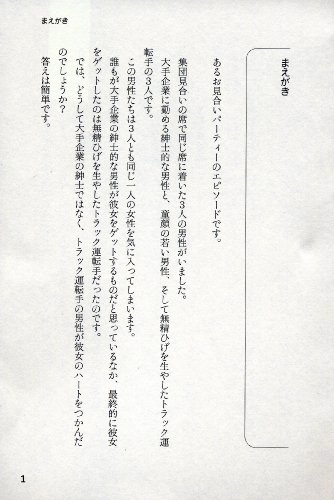 まえがき
まえがき
あるお見合いパーティーのエピソードです。
集団見合いの席で同じ席に着いた３人の男性がいました。
大手企業に勤める紳士的な男性と、童顔の若い男性、そして無精ひげを生やしたトラック運
転手の３人です。
この男性たちは３人とも同じ一人の女性を気に入ってしまいます。
誰もが大手企業の紳士的な男性が彼女をゲットするものだと思っているなか、最終的に彼女
をゲットしたのは無精ひげを生やしたトラック運転手だったのです。
では、どうして大手企業の紳士ではなく、トラック運転手の男性が彼女のハートをつかんだ
のでしょうか？
答えは簡単です。
1